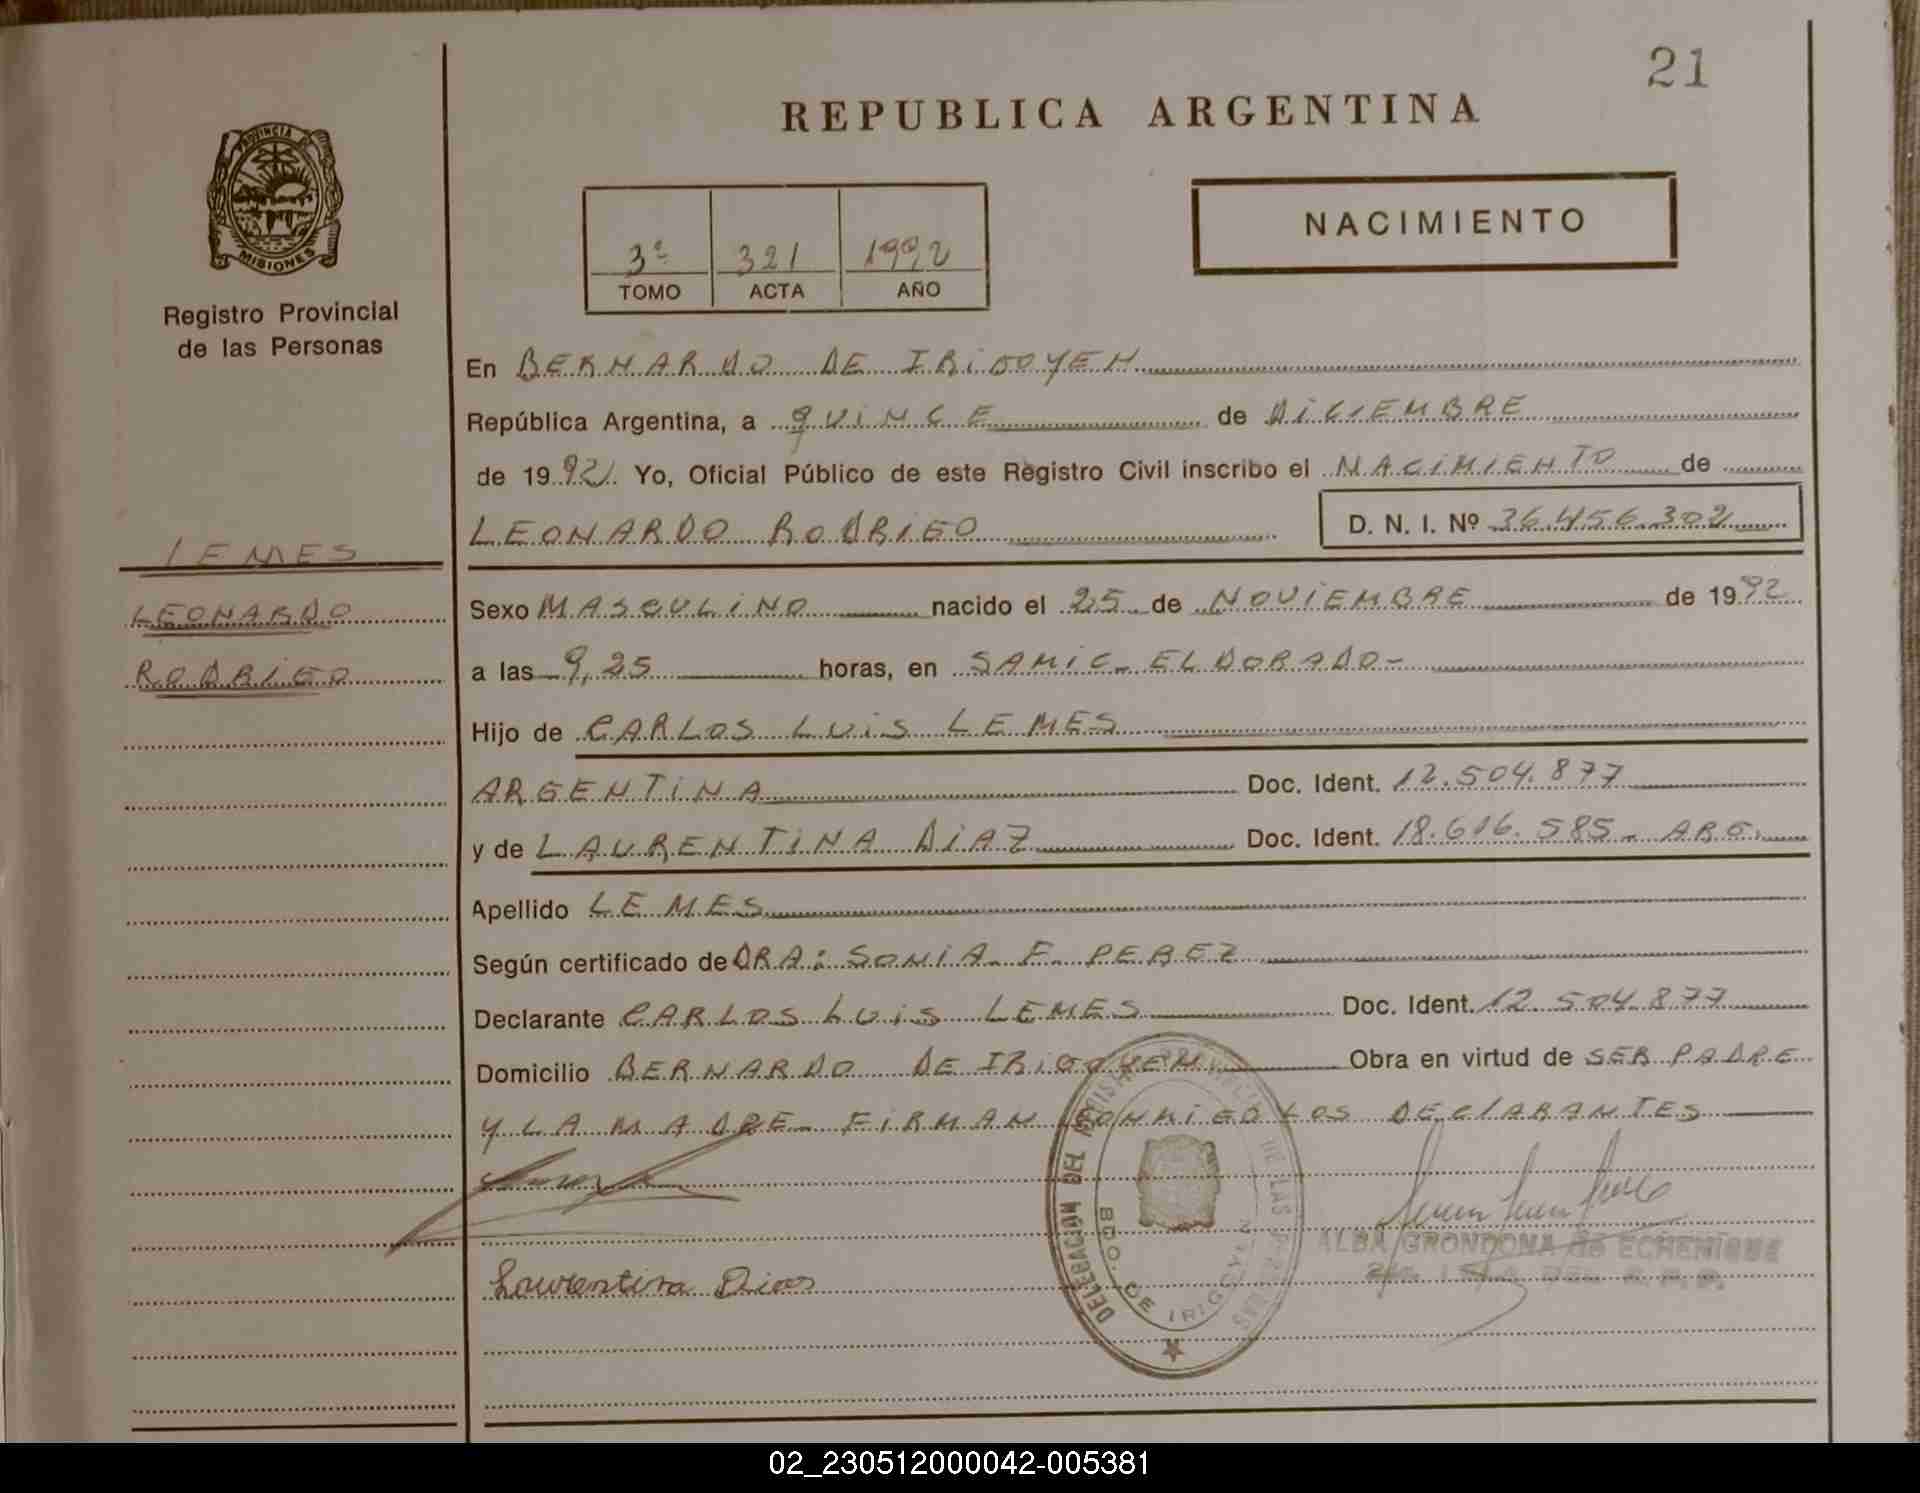 21
REPUBLICA ARGENTINA
PROVINCIA DE
MISIONES
Registro Provincial
de las Personas
NACIMIENTO
3º 321 1992
TOMO ACTA AÑO
En BERNARDO DE IRIGOYEN
República Argentina, a QUINCE de DICIEMBRE
de 1992 Yo, Oficial Público de este Registro Civil inscribo el NACIMIENTO de
LEONARDO RODRIGO D. N. I. Nº 36.456.302
LEMES
LEONARDO
RODRIGO
Sexo MASCULINO nacido el 25 de NOVIEMBRE de 1992
a las 9,25 horas, en SAMIC - ELDORADO-
Hijo de CARLOS LUIS LEMES
ARGENTINA Doc. Ident. 12.504.877
y de LAURENTINA DIAZ Doc. Ident. 18.616.585 - ARG.
Apellido LEMES
Según certificado de DRA: SONIA F. PEREZ
Declarante CARLOS LUIS LEMES Doc. Ident. 12.504.877
Domicilio BERNARDO DE IRIGOYEN Obra en virtud de SER PADRE
Y LA MADRE - FIRMAN CONMIGO LOS DECLARANTES
DELEGACION DEL DE LAS
BDO. DE IRIGOYEN
ALBA GRONDONA de ECHENIQUE
Laurentina Dias
02_230512000042-005381